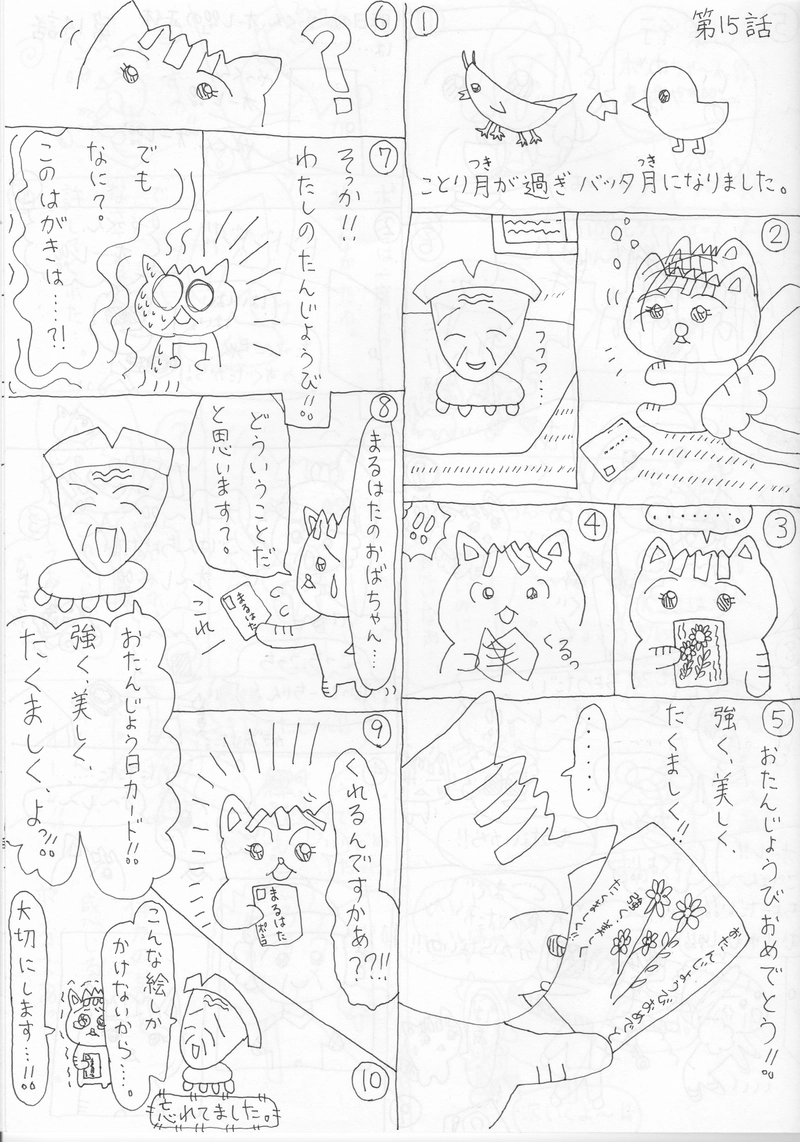 第15話
①
ことり月が過ぎバッタ月になりました。
つき
つき
②
フフフ‥‥
③
・・・・・・。
④
くるっ
⑤
おたんじょうびおめでとう!!。
強く、美しく、
たくましく!!
・・・・・
おたんじょうびおめでとう
強く美しく
たくましく
⑥
?
⑦
そっか!!
わたしのたんじょうび!!。
でも
なに?。
このはがきは‥‥?!
⑧
まるはたのおばちゃん‥‥
どういうことだ
と思います?。
まるはた
これ
おたんじょう日カード!!。
強く、美しく、
たくましく、よっ!!。
⑨
くれるんですかぁ??!!
まるはた
⑩
こんな絵しか
かけないから‥‥。
大切にします‥‥!!。
忘れてました。